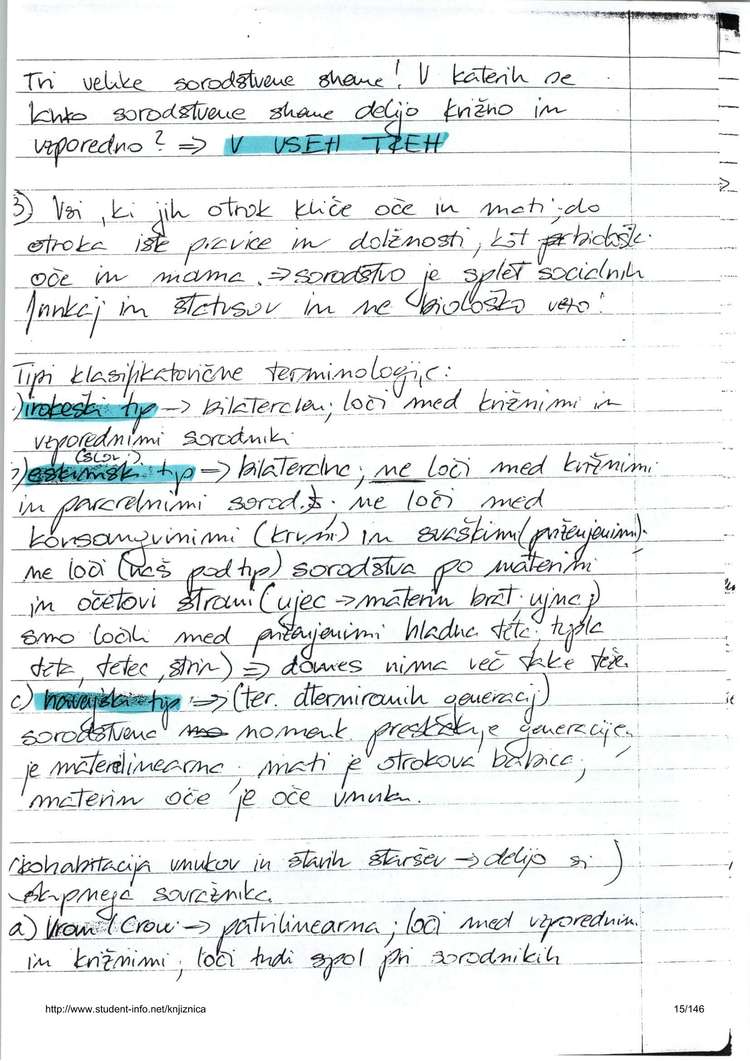 Tri velike sorodstvene sheme! V katerih se
lahko sorodstvene sheme delijo križno in
vzporedno? => V VSEH TREH
3) Vsi, ki jih otrok kliče oče in mati; do
otroka iste pravice in dolžnosti, kot biološk.
oče in mama. => sorodstvo je splet socialnih
funkcij in statusov in ne biološko
Tipi klasifikatorične terminologije:
irokeški tip -> bilateralen; loči med križnimi in
vzporednimi sorodniki
(slov.)
eskimski tip -> bilateralna; ne loči med križnimi
in paralelnimi sorod.; ne loči med
konsangvinimi (krvni) in svaškimi (priženjenimi).
ne loči (naš podtip) sorodstva po materini
in očetovi strani (ujec -> materin brat, ujna;)
smo ločili med priženjenimi hladna teta,
teta, tetec, stric) => danes nima več take teže.
c) havajski tip => (ter. generacij)
sorodstvena preskakuje generacije,
je materelinearna; mati je otrokova babica;
materin oče je oče vnuka.
(kohabitacija vnukov in starih staršev -> delijo si)
skupnega sovražnika.
a) Crow -> patrilinearna; loči med vzporednim
in križnimi; loči tudi spol pri sorodnikih
http://www.student-info.net/knjiznica
15/146